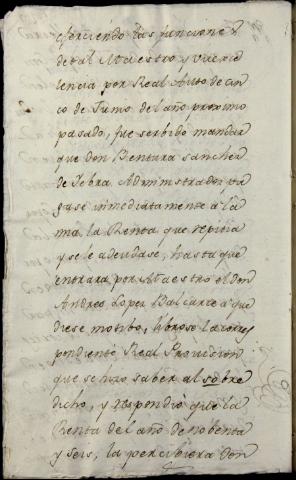 exerciendo las funciones
de tal Maestro y vuexce
lencia por Real Auto de cin
co de Junio del año proximo
pasado, fue serbido mandar
que Don Bentura Sanchez
de Tebra Administrador pa
gase inmediatamente a la
ma la Renta que repetia
y se le adeudase, hasta que
entrara por Maestro el Don
Andres Lopez Balcarze a que
diese motibo, librose la corres
pondiente Real Provision
que se hizo saber al sobre
dicho, y respondio que la
Renta del año de nobenta
y seis, la percibiera Don